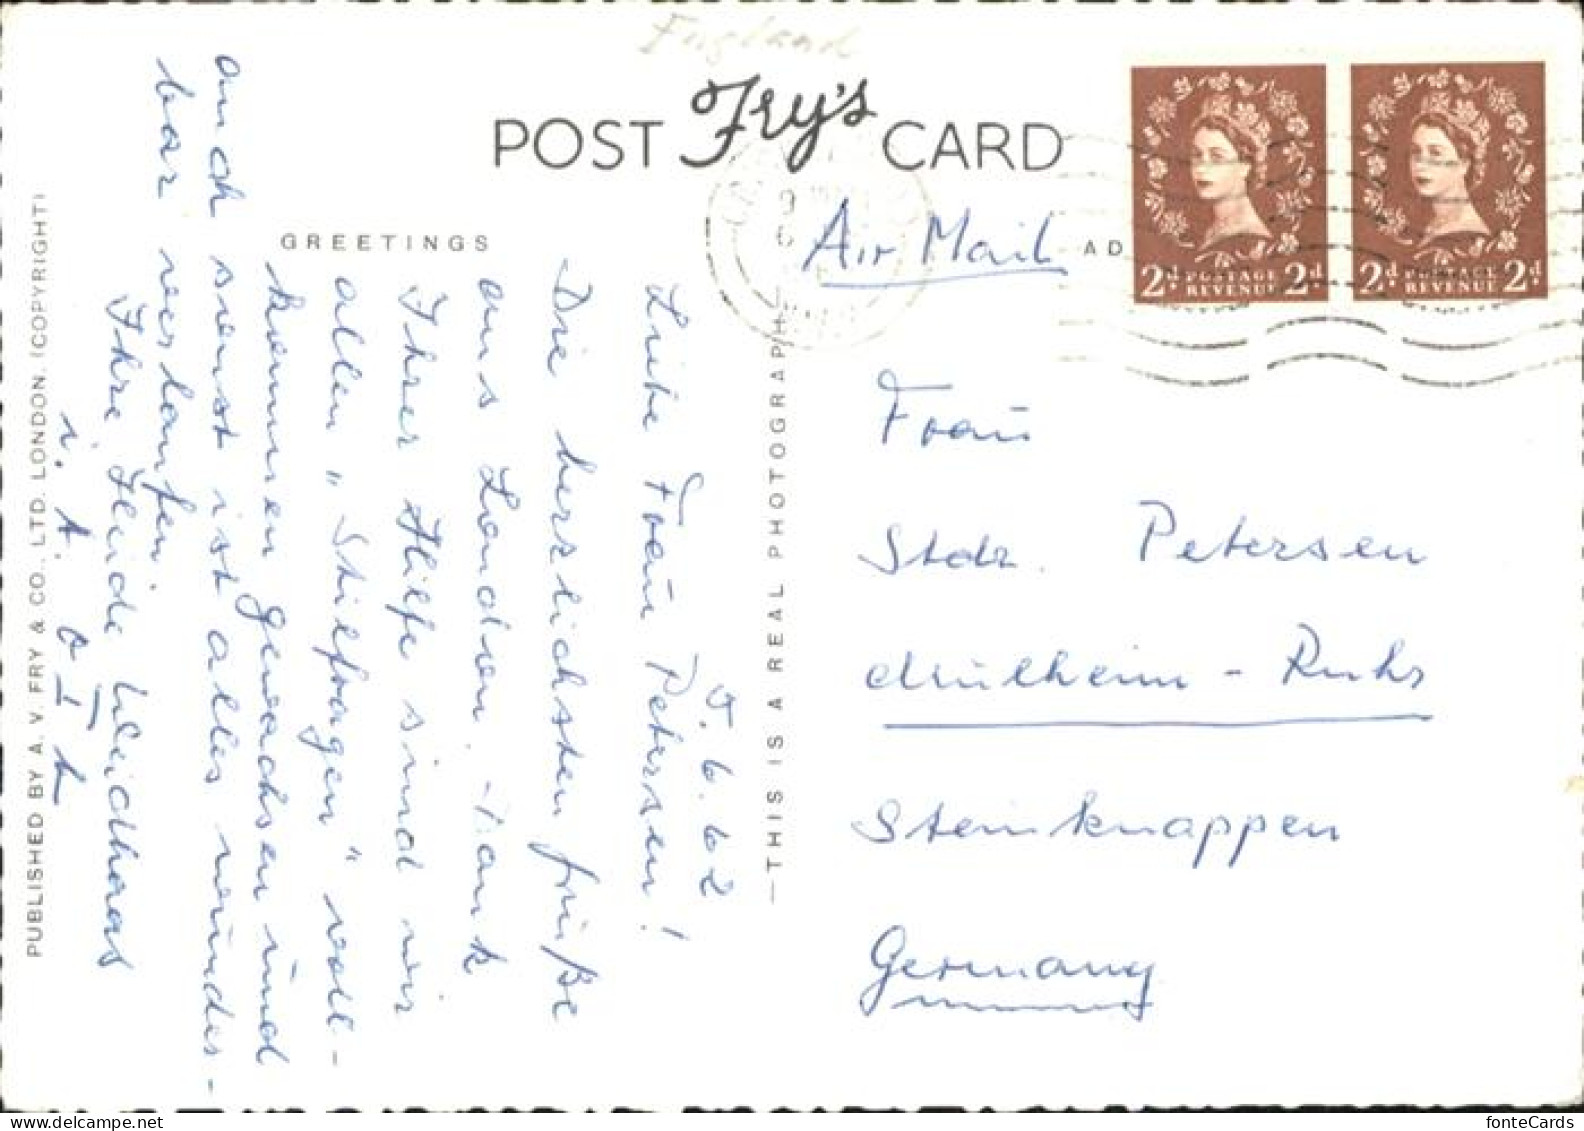 England
POST Fry's CARD
Air Mail
GREETINGS
AD
2d POSTAGE REVENUE 2d
2d POSTAGE REVENUE 2d
5.6.62
Liebe Frau Petersen!
Die herzlichsten Grüße
aus London. Dank
Ihrer Hilfe sind wir
allen „Stilfragen" voll-
kommen gewachsen und
auch sonst ist alles wunder-
bar verlaufen.
Ihre Heide
i. A.
Frau
Stdr. Petersen
Mülheim - Ruhr
Steinknappen
Germany
—THIS IS A REAL PHOTOGRAPH—
PUBLISHED BY A. V. FRY & CO., LTD. LONDON. (COPYRIGHT)
fonteCards